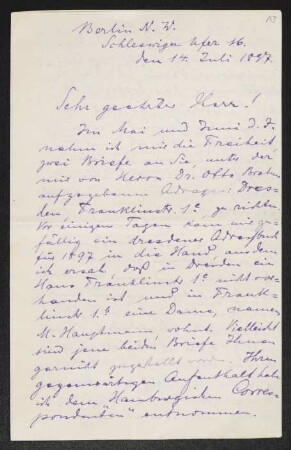 Berlin N. W.
Schleswiger Ufer 16.
den 14. Juli 1897.
Sehr geehrter Herr!
Im Mai und Juni d. J.
nahm ich mir die Freiheit
zwei Briefe an Sie, unter der
mir von Herrn Dr. Otto Brahm
aufgegebenen Adresse: Dres-
den, Franklinstr. 1c, zu richten.
Vor einigen Tagen kam mir zu-
fällig ein dresdener Adreßbuch
für 1897 in die Hand, aus dem
ich ersah, daß in Dresden ein
Haus Franklinstr. 1c nicht vor-
handen ist und in Frank-
linstr. 1b eine Dame, namens
M. Hauptmann wohnt. Vielleicht
sind jene beiden Briefe Ihnen
garnicht zugestellt worden. Ihren
gegenwärtigen Aufenthalt habe
ich dem "Hamburgischen Corres-
pondenten" entnommen.